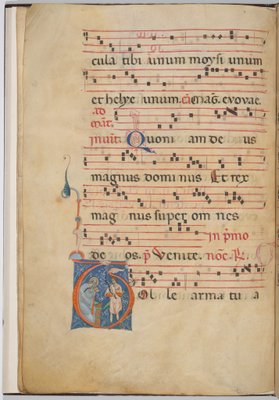 cula tibi unum moysi unum
et helye unum. evovae.
ad
mat.
invit. Quoni am de us
magnus domi nus Et rex
mag nus super om nes
in p̄mo
de os. p̄ Venite. noc̄. R̄.